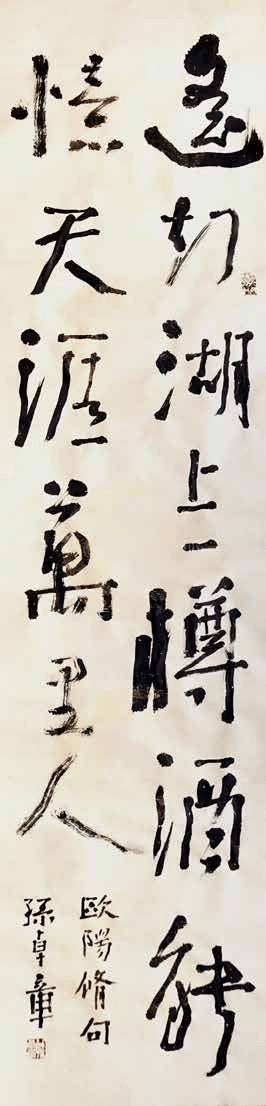 遙知湖上一樽酒能
憶天涯萬里人
歐陽脩句
孫卓章